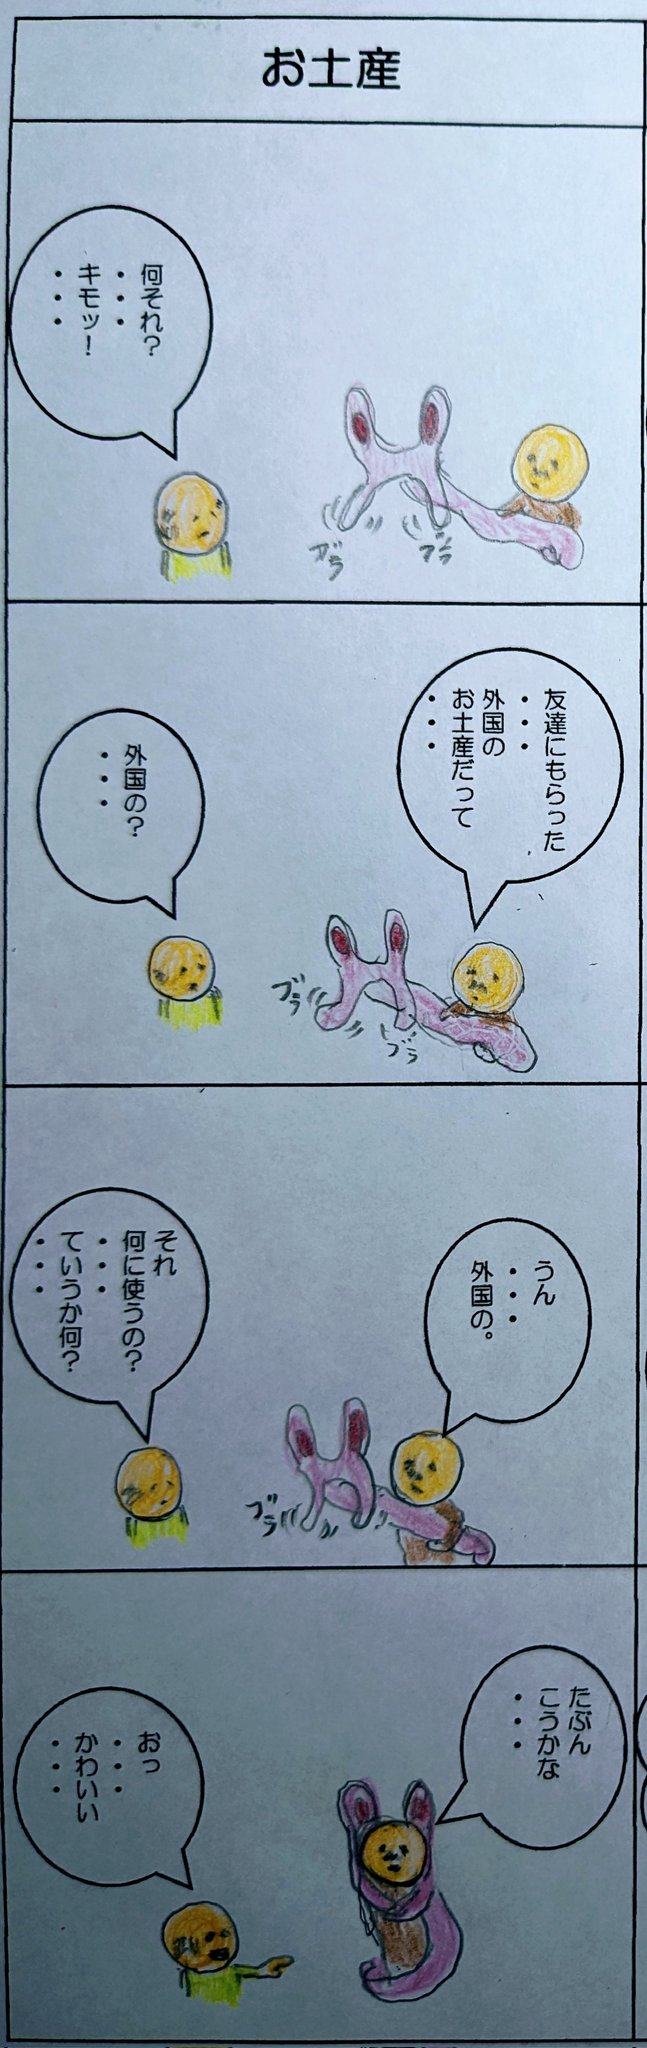 お土産
何それ？
・・・
キモッ！
・・・
ブラ
ブラ
友達にもらった
・・・
外国の
お土産だって
・・・
外国の？
・・・
ブラ
ブラ
うん
・・・
外国の。
それ
何に使うの？
・・・
ていうか何？
・・・
ブラ
たぶん
こうかな
・・・
おっ
・・・
かわいい
・・・